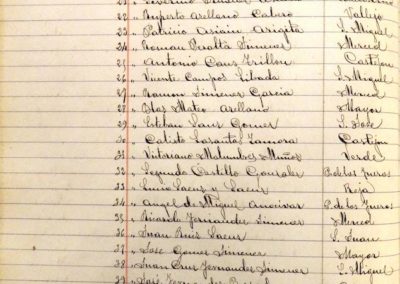 22 " Ruperto Arellano Calvero Vallejo
23 " Patricio Asiain Arigita S. Miguel
24 " Roman Peralta Jimenez Merced
25 " Antonio Caus Trillon Castejon
26 " Vicente Campos S. Miguel
27 " Ramon Jimenez Garcia Merced
28 " Blas Mateo Arellano Mayor
29 " Esteban Sanz Gomez S. Jose
30 " Calisto Lasantos Zamora Castejon
31 " Victoriano Malumbres Muñoz Verde
32 " Segundo Castillo Gonzalez P. de los Fueros
33 " Saenz y Saenz Roja
34 " Angel de Miguel Ancizar P. de los Fueros
35 " Ricardo Fernandez Jimenez Merced
36 " Juan Ruiz Saenz S. Juan
37 " Jose Gomez Jimenez Mayor
38 " Juan Cruz Fernandez Jimenez S. Miguel